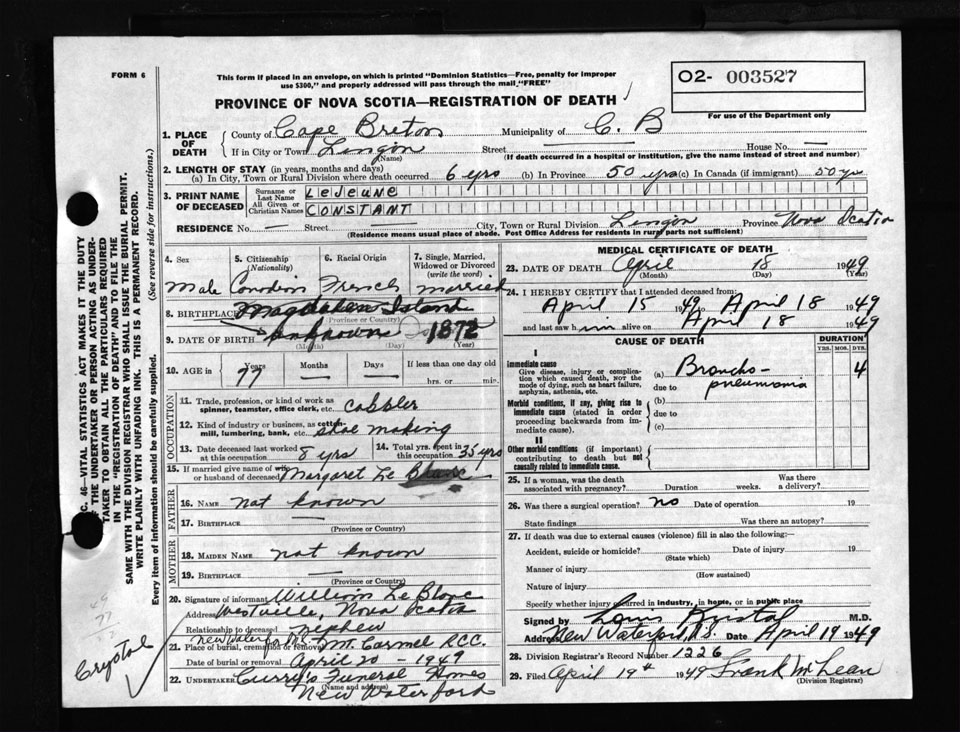 FORM 6
This form if placed in an envelope, on which is printed "Dominion Statistics—Free, penalty for improper
use $300," and properly addressed will pass through the mail "FREE"
PROVINCE OF NOVA SCOTIA—REGISTRATION OF DEATH
O2- 003527
For use of the Department only
1. PLACE OF DEATH
County of Cape Breton Municipality of C. B
If in City or Town Lingan (Name) Street House No. —
(If death occurred in a hospital or institution, give the name instead of street and number)
2. LENGTH OF STAY (in years, months and days)
(a) In City, Town or Rural Division where death occurred 6 yrs (b) In Province 50 yrs (c) In Canada (if immigrant) 50 yrs
3. PRINT NAME OF DECEASED
Surname or Last Name LEJEUNE
All Given or Christian Names CONSTANT
RESIDENCE No. — Street City, Town or Rural Division Lingan Province Nova Scotia
(Residence means usual place of abode. Post Office Address for residents in rural parts not sufficient)
4. Sex 5. Citizenship (Nationality) 6. Racial Origin 7. Single, Married, Widowed or Divorced (write the word)
Male Canadian French married
8. BIRTHPLACE Magdalen Island
(Province or Country)
9. DATE OF BIRTH unknown 1872
(Month) (Day) (Year)
10. AGE in 77 Years Months — Days — If less than one day old
hrs. or min.
OCCUPATION
11. Trade, profession, or kind of work as
spinner, teamster, office clerk, etc. cobbler
12. Kind of industry or business, as cotton-
mill, lumbering, bank, etc. shoe making
13. Date deceased last worked at this occupation 8 yrs 14. Total yrs. spent in this occupation 35 yrs
15. If married give name of wife
or husband of deceased Margaret Le
FATHER
16. NAME not known
17. BIRTHPLACE —
(Province or Country)
MOTHER
18. MAIDEN NAME not known
19. BIRTHPLACE —
(Province or Country)
20. Signature of informant William Le Blanc
Address Westville, Nova Scotia
Relationship to deceased nephew
New Waterford N.S.
21. Place of burial, cremation or removal Mt. Carmel RCC.
Date of burial or removal April 20 - 1949
22. UNDERTAKER Curry's Funeral Homes
(Name and address)
New Waterford
MEDICAL CERTIFICATE OF DEATH
23. DATE OF DEATH April 18 1949
(Month) (Day) (Year)
24. I HEREBY CERTIFY that I attended deceased from:
April 15 1949 to April 18 1949
and last saw him alive on April 18 1949
CAUSE OF DEATH DURATION
YRS. MOS. DYS.
I
Immediate cause
Give disease, injury or complica-
tion which caused death, NOT the
mode of dying, such as heart failure,
asphyxia, asthenia, etc.
(a) Broncho- 4
due to pneumonia
Morbid conditions, if any, giving rise to
immediate cause (stated in order
proceeding backwards from im-
mediate cause).
(b)
due to
(c)
II
Other morbid conditions (if important)
contributing to death but not
causally related to immediate cause.
25. If a woman, was the death
associated with pregnancy? Duration weeks. Was there
a delivery?
26. Was there a surgical operation? no Date of operation 19
State findings Was there an autopsy?
27. If death was due to external causes (violence) fill in also the following:—
Accident, suicide or homicide? Date of injury 19
(State which)
Manner of injury
(How sustained)
Nature of injury
Specify whether injury occurred in industry, in home, or in public place
Signed by Louis Kristal M.D.
Address New Waterford, N.S. Date April 19 1949
28. Division Registrar's Record Number 1226
29. Filed April 19th 1949 Frank McLean
(Division Registrar)
C. 46—VITAL STATISTICS ACT MAKES IT THE DUTY
THE UNDERTAKER OR PERSON ACTING AS UNDER-
TAKER TO OBTAIN ALL THE PARTICULARS REQUIRED
IN THE "REGISTRATION OF DEATH" AND TO FILE THE
SAME WITH THE DIVISION REGISTRAR WHO SHALL ISSUE THE BURIAL PERMIT.
WRITE PLAINLY WITH UNFADING INK. THIS IS A PERMANENT RECORD.
Every item of information should be carefully supplied. (See reverse side for instructions.)
77
Crystal